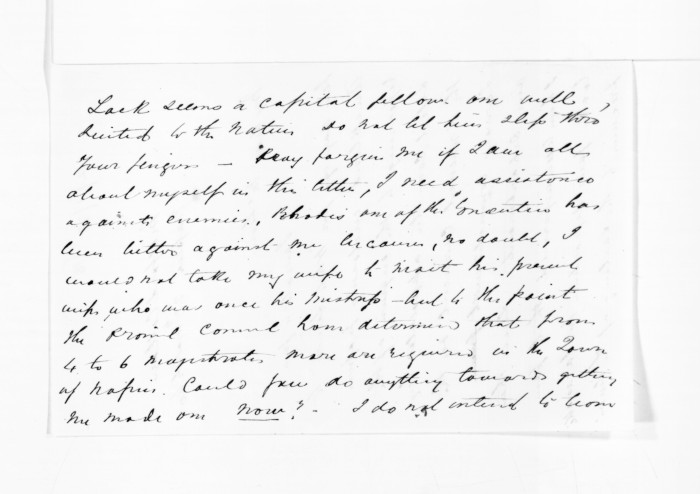 Lack seems a capital fellow one well
suited to the Natives Do not let him slip thro
your fingers - Pray forgive me if I am all
about myself in this letter, I need assistance
against enemies. Rhodes one of the Executive has
been bitter against me because, no doubt, I
would not take my wife to visit his present
wife, who was once his mistress - but to the point
the Provinl Council have determined that from
4 to 6 magistrates more are required in the Town
of Napier. Could you do anything towards getting
me made one now? - I do not intend to leave